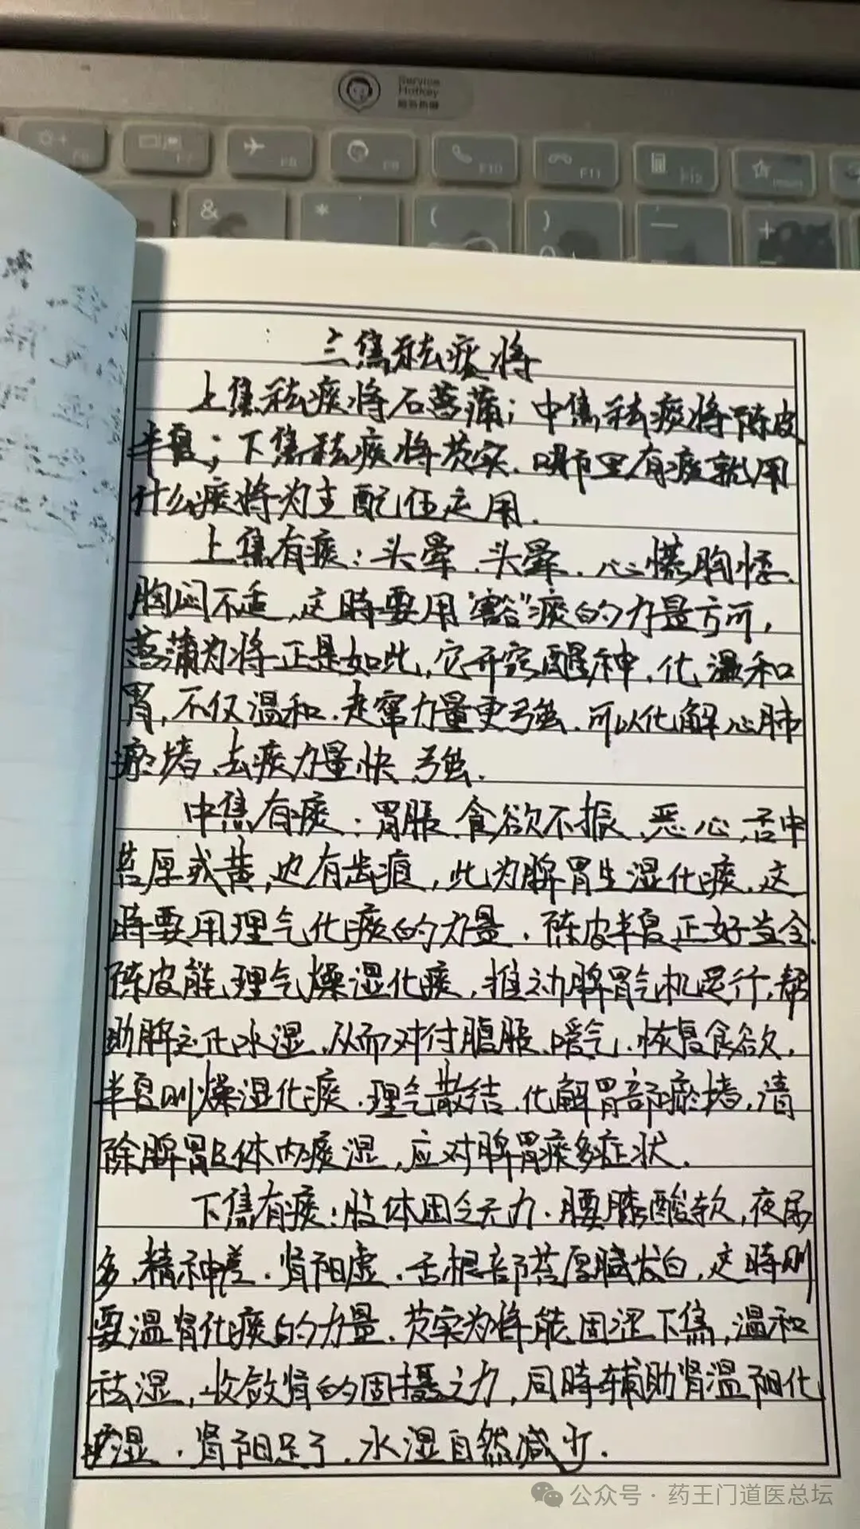 Service
Hotkey
F6
F7
F8
F9
F10
F11
F12
&
*
(
)
三焦祛痰将
上焦祛痰将石菖蒲；中焦祛痰将陈皮
半夏；下焦祛痰将芡实．哪里有痰就用
什么痰将为主配伍运用．
上焦有痰：头晕．头晕．心慌胸
胸闷不适，这時要用"豁"痰的力量方可，
菖蒲为将正是如此，它开窍醒神．化湿和
胃，不仅温和．走窜力量更强．可以化解心肺
瘀堵、去痰力量快、强．
中焦有痰：胃胀．食欲不振、恶心，舌中
苔厚或黄，也有齿痕，此为脾胃生湿化痰．这
時要用理气化痰的力量．陈皮半夏正好当令．
陈皮能理气燥湿化痰，推动脾胃气机运行，帮
助脾运化水湿．从而对付腹胀．嗳气．恢复食欲．
半夏则燥湿化痰．理气散结．化解胃部瘀堵，清
除脾胃及体内痰湿，应对脾胃痰多症状．
下焦有痰：肢体困乏无力．腰膝酸软，夜尿
多，精神差．肾阳虚．舌根部苔厚腻发白，这時则
要温肾化痰的力量．芡实为将能固涩下焦，温和
祛湿，收敛肾的固摄之力，同時辅助肾温阳化
湿．肾阳足了．水湿自然减少．
公众号·药王门道医总坛